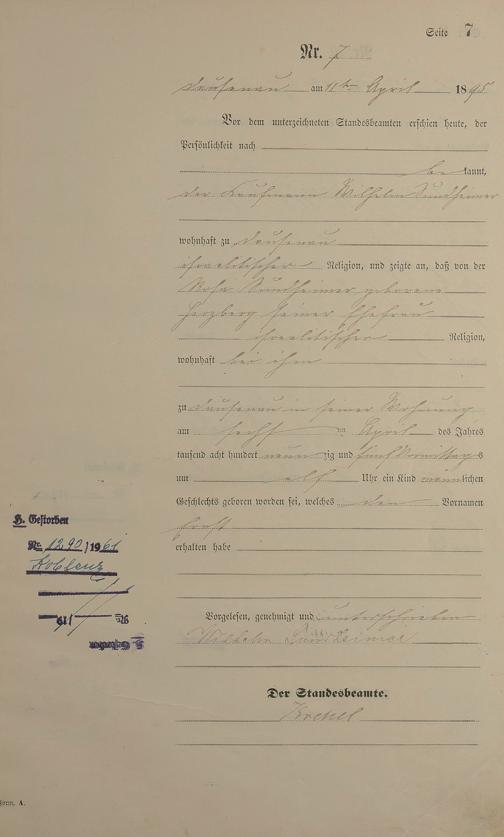 Seite 7
Nr. 7
Dausenau am 11ten April 1895
Vor dem unterzeichneten Standesbeamten erschien heute, der
Persönlichkeit nach
be kannt,
der Kaufmann Wilhelm Sundheimer
wohnhaft zu Dausenau
israelitischer Religion, und zeigte an, daß von der
Rosa Sundheimer geborene
Herzberg seiner Ehefrau
israelitischer Religion,
wohnhaft bei ihm
zu Dausenau in seiner Wohnung
am sechsten April des Jahres
tausend acht hundert neunzig und fünf Vormittags
um elf Uhr ein Kind männlichen
Geschlechts geboren worden sei, welches den Vornamen
Ernst
erhalten habe
Vorgelesen, genehmigt und unterschrieben
Wilhelm Sundheimer
Der Standesbeamte.
H. Gestorben
Nr. 1290/1961
Koblenz
Form. A.